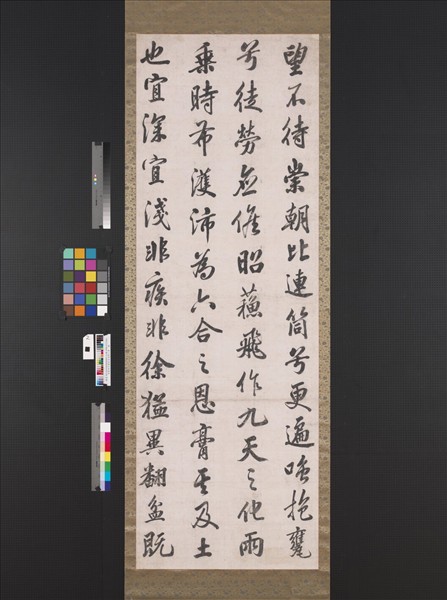 望不待崇朝比連筒兮更遍嗤抱甕
兮徒勞應候昭蘇飛作九天之化雨
乘時布濩沛為六合之恩膏其及土
也宜深宜淺非疾非徐猛異翻盆既